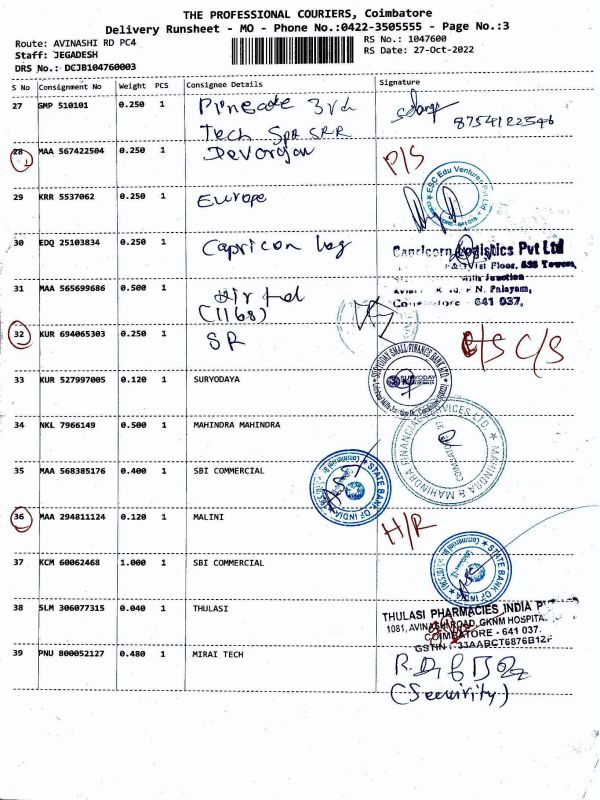 THE PROFESSIONAL COURIERS, Coimbatore
Delivery Runsheet - MO - Phone No.:0422-3505555 - Page No.:3
Route: AVINASHI RD PC4
RS No.: 1047600
Staff: JEGADESH
RS Date: 27-Oct-2022
DRS No.: DCJB104760003
S No Consignment No Weight PCS Consignee Details Signature
27 GMP 510101 0.250 1 3rd
8754122546
Tech Spa SRR
28 MAA 567422504 0.250 1 Devarajan P/S
ESC Edu Ventures Pvt Ltd
29 KRR 5537062 0.250 1 Europe
30 EDQ 25103834 0.250 1 Capricon log
Capricorn Logistics Pvt Ltd
Floor, 535 Towers,
Junction
31 MAA 565699686 0.500 1
(1168)
P.N. Palayam,
641 037.
32 KUR 694065303 0.250 1 SR C/S
SURYODAY SMALL FINANCE BANK LTD.
SURYODAY
33 KUR 527997005 0.120 1 SURYODAYA
34 NKL 7966149 0.500 1 MAHINDRA MAHINDRA
MAHINDRA & MAHINDRA FINANCIAL SERVICES LTD.
COIMBATORE 37
35 MAA 568385176 0.400 1 SBI COMMERCIAL
STATE BANK OF INDIA
36 MAA 294811124 0.120 1 MALINI H/R
37 KCM 60062468 1.000 1 SBI COMMERCIAL
STATE BANK OF INDIA
38 SLM 306077315 0.040 1 THULASI
THULASI PHARMACIES INDIA
1081, AVINASHI ROAD, GKNM HOSPITAL
COIMBATORE - 641 037.
GSTIN : 33AABCT6876B1ZF
39 PNU 800052127 0.480 1 MIRAI TECH
(Security)